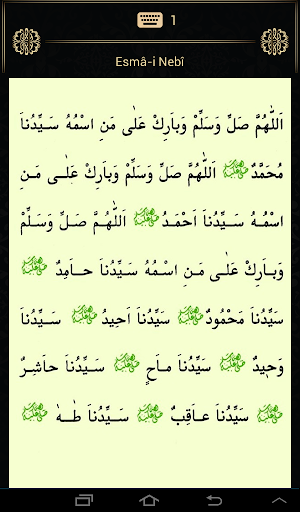 1
Esmâ-i Nebî
اَللّٰهُمَّ صَلِّ وَسَلِّمْ وَبَارِكْ عَلٰى مَنِ اسْمُهُ سَيِّدُنَا
مُحَمَّدٌ ﷺ اَللّٰهُمَّ صَلِّ وَسَلِّمْ وَبَارِكْ عَلٰى مَنِ
اسْمُهُ سَيِّدُنَا اَحْمَدُ ﷺ اَللّٰهُمَّ صَلِّ وَسَلِّمْ
وَبَارِكْ عَلٰى مَنِ اسْمُهُ سَيِّدُنَا حَامِدٌ ﷺ
سَيِّدُنَا مَحْمُودٌ ﷺ سَيِّدُنَا اَحِيدُ ﷺ سَيِّدُنَا
وَحِيدٌ ﷺ سَيِّدُنَا مَاحٍ ﷺ سَيِّدُنَا حَاشِرٌ
ﷺ سَيِّدُنَا عَاقِبٌ ﷺ سَيِّدُنَا طٰهٰ